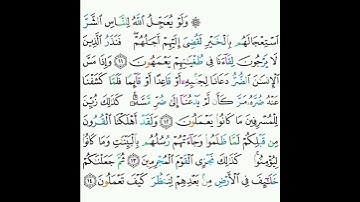 ۞ وَلَوْ يُعَجِّلُ ٱللَّهُ لِلنَّاسِ ٱلشَّرَّ
ٱسْتِعْجَالَهُم بِٱلْخَيْرِ لَقُضِىَ إِلَيْهِمْ أَجَلُهُمْ ۖ فَنَذَرُ ٱلَّذِينَ
لَا يَرْجُونَ لِقَآءَنَا فِى طُغْيَٰنِهِمْ يَعْمَهُونَ ١١ وَإِذَا مَسَّ
ٱلْإِنسَٰنَ ٱلضُّرُّ دَعَانَا لِجَنۢبِهِۦٓ أَوْ قَاعِدًا أَوْ قَآئِمًا فَلَمَّا كَشَفْنَا
عَنْهُ ضُرَّهُۥ مَرَّ كَأَن لَّمْ يَدْعُنَآ إِلَىٰ ضُرٍّ مَّسَّهُۥ ۚ كَذَٰلِكَ زُيِّنَ
لِلْمُسْرِفِينَ مَا كَانُوا۟ يَعْمَلُونَ ١٢ وَلَقَدْ أَهْلَكْنَا ٱلْقُرُونَ
مِن قَبْلِكُمْ لَمَّا ظَلَمُوا۟ ۙ وَجَآءَتْهُمْ رُسُلُهُم بِٱلْبَيِّنَٰتِ وَمَا كَانُوا۟
لِيُؤْمِنُوا۟ ۚ كَذَٰلِكَ نَجْزِى ٱلْقَوْمَ ٱلْمُجْرِمِينَ ١٣ ثُمَّ جَعَلْنَٰكُمْ
خَلَٰٓئِفَ فِى ٱلْأَرْضِ مِنۢ بَعْدِهِمْ لِنَنظُرَ كَيْفَ تَعْمَلُونَ ١٤